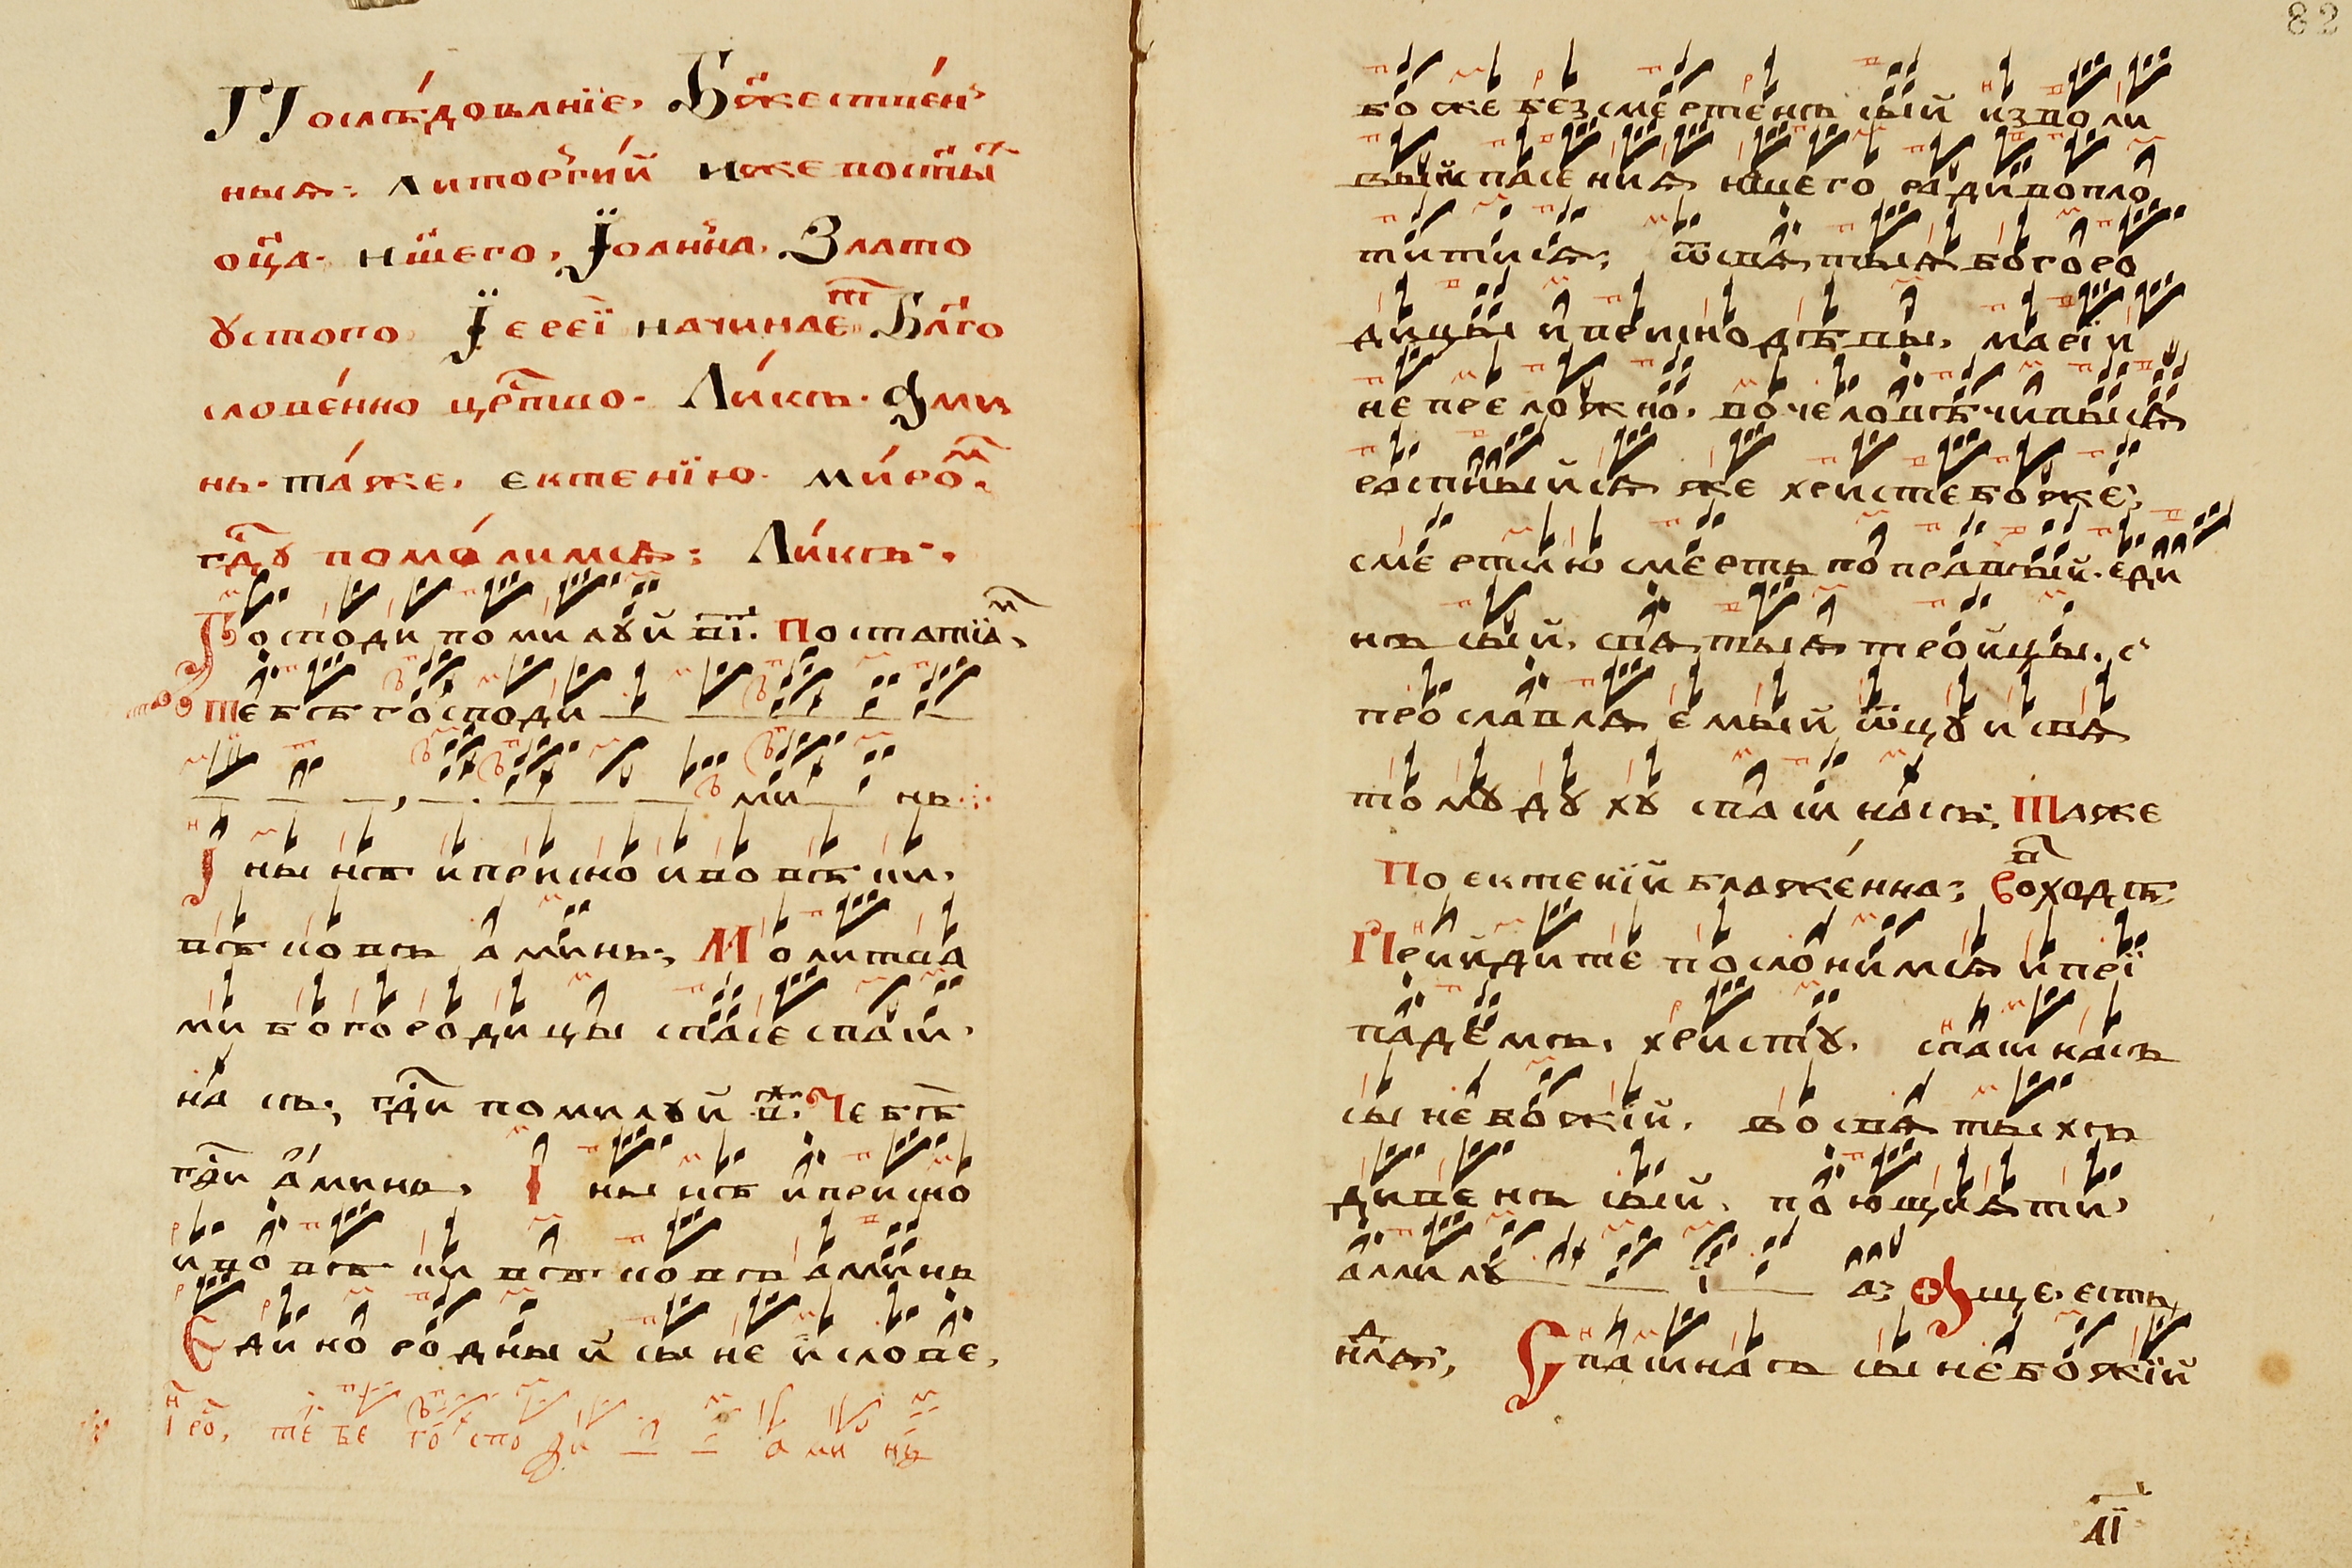 Послѣ́дованїе, Бж҃естве́н
ныѧ. Литорги́й иже во ст҃ы́х
оц҃а. нш҃его, Їоанна. Злато
ꙋстого Їерей начинает Бл҃го
слове́нно црⷭ҇тво. Ли́къ. Ами
нь. та́же. ектенїю. Ми́ром
гдⷭ҇ꙋ помо́лимсѧ: Ли́къ.,
Господи помилꙋй в҃і. По статїам,
Тебѣ господи
ми нь
І ны нѣ и присно и во вѣ ки.
вѣ ковъ аминь; Молитва
ми богородицы спасе спаси.
на съ; гд҃и помилꙋй г҃. Тебѣ
гд҃и аминь, І ны нѣ и присно
и во вѣ ки вѣ ковъ аминь
Единородный сыне и слове,
Іро, тебе господи аминь
82
боже безсмертенъ сый изволи
вый спасениѧ нш҃его ради вопло
титисѧ; ѿ свѧтыѧ богоро
дицы и приснодѣвы. марїи
непреложно. вочеловѣчивыйсѧ
распныйсѧ же христе боже,
смертию смерть поправый. еди
нъ сый, свѧтыѧ тройцы. с
прославлѧемый ѿцꙋ и свѧ
томꙋ дꙋхꙋ спаси насъ. Таже
по ектенїи блаже́нна; Воходъ
Прийдите поклонимсѧ и прї
падемъ, христꙋ. спаси насъ
сыне божїй. во свѧтыхъ
дивенъ сый. поющиѧ ти
аллилꙋ а; Аще. есть
нлⷣѧ, Спаси насъ сыне божїй